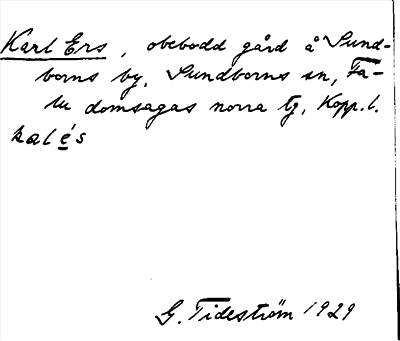 Karl Ers, obebodd gård å Sund-
borns by, Sundborns sn, Fa-
lu domsagas norra tg, Kopp. l.
kal é s
G. Tideström 1929